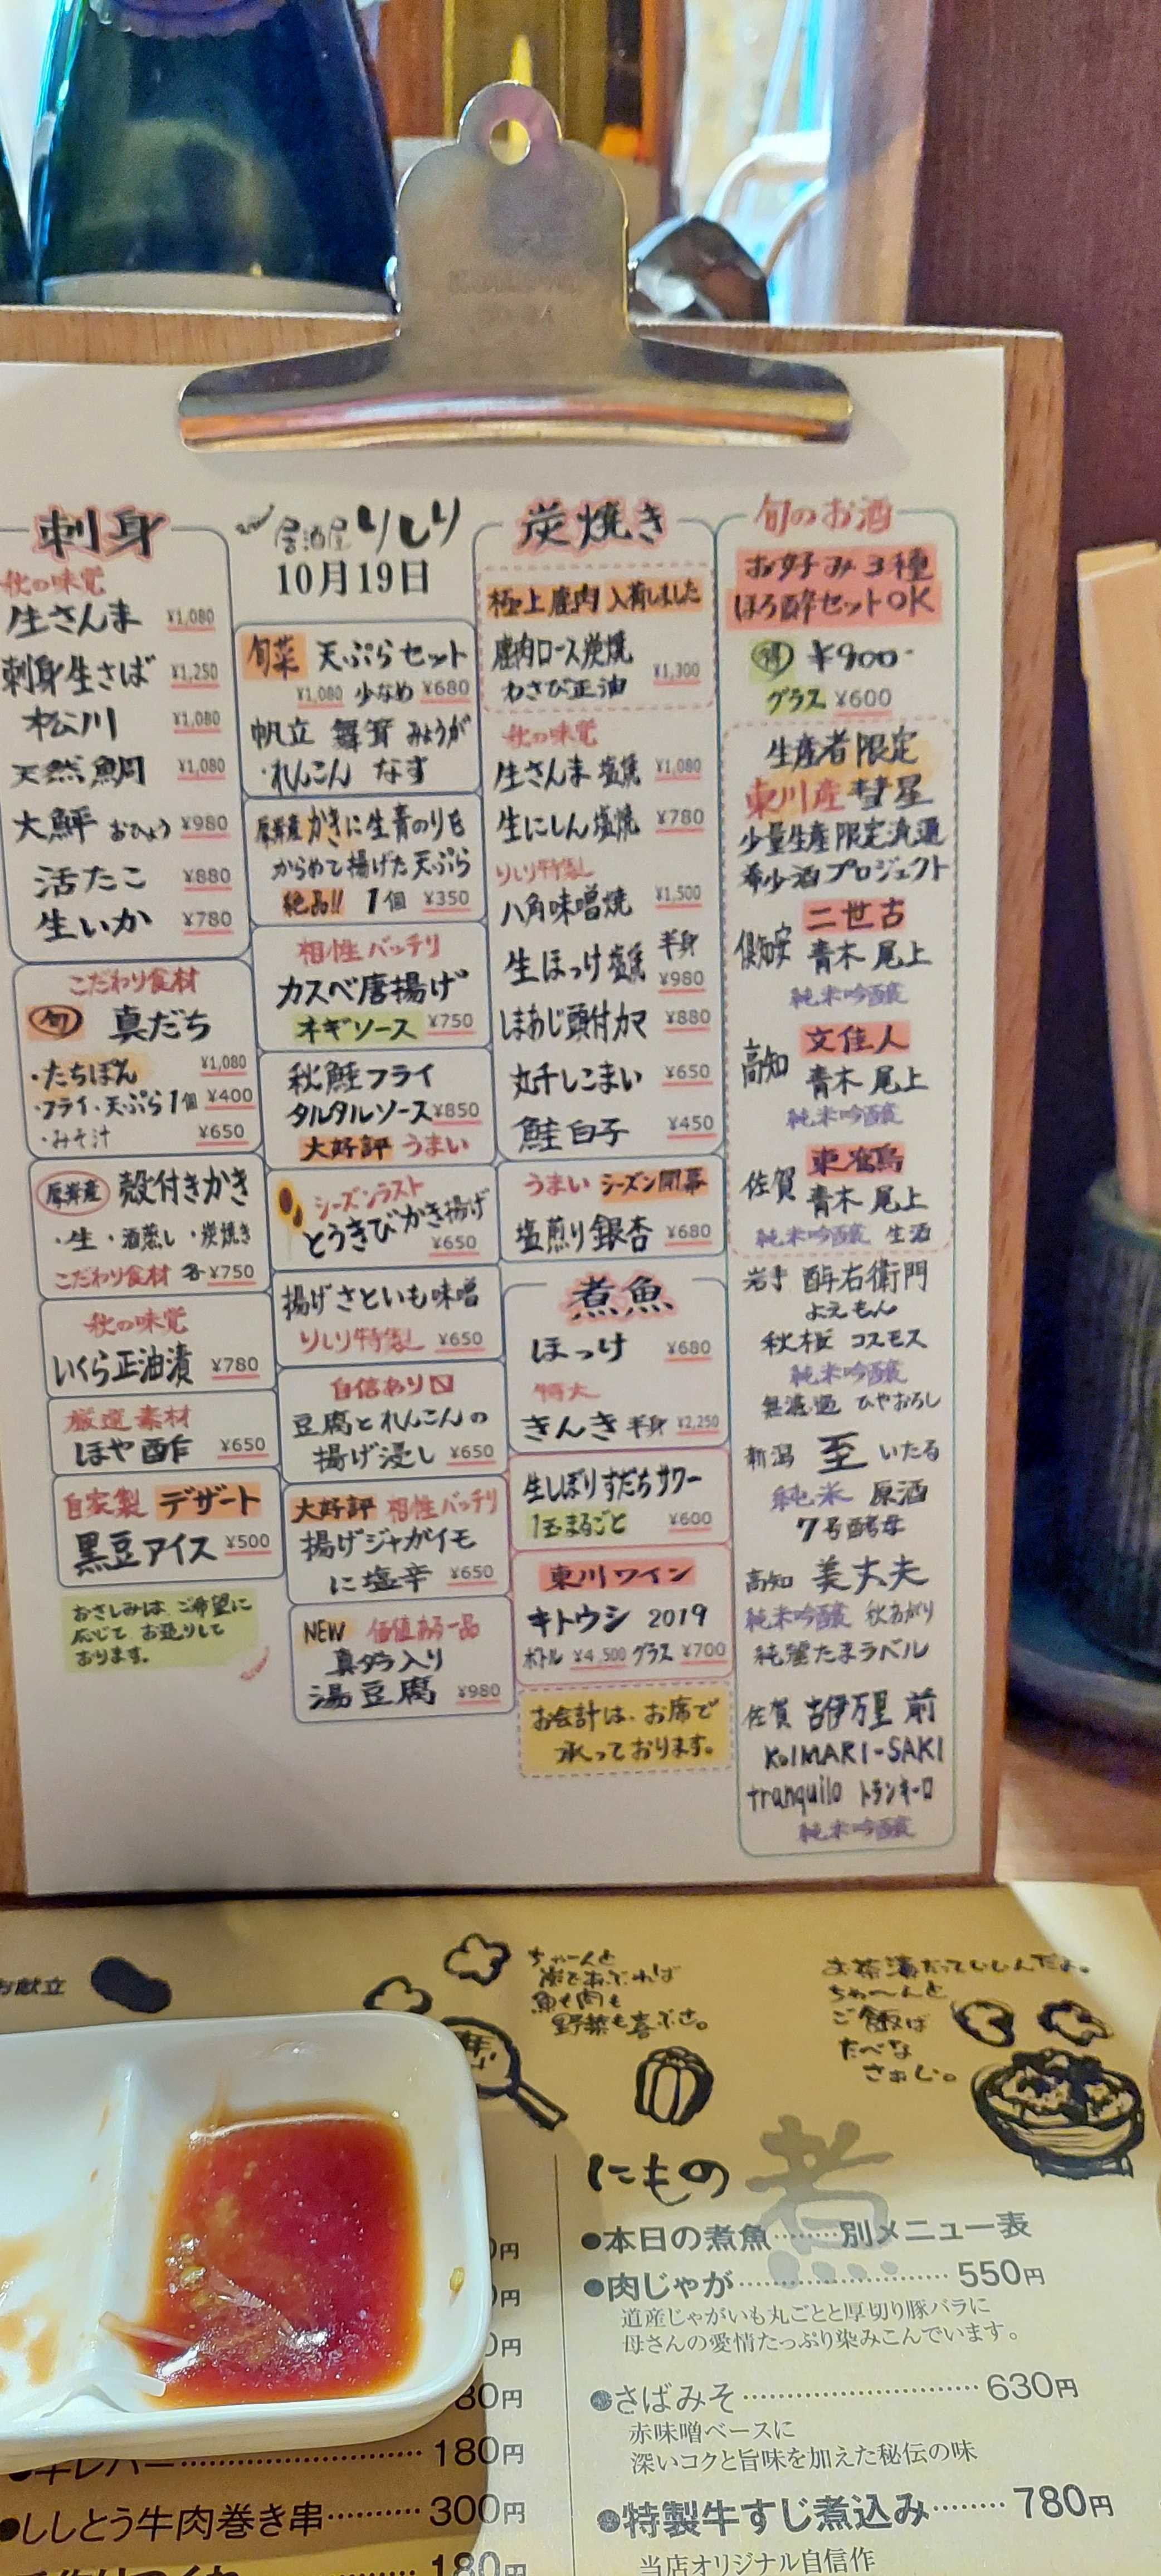 刺身
秋の味覚
生さんま ¥1,080
刺身生さば ¥1,250
松川 ¥1,080
天然鯛 ¥1,080
大鮃 おひょう ¥980
活たこ ¥880
生いか ¥780
こだわり食材
旬 真だち
・たちぽん ¥1,080
・フライ・天ぷら1個 ¥400
・みそ汁 ¥650
厚岸産 殻付きかき
・生 ・酒蒸し ・炭焼き
こだわり食材 各¥750
秋の味覚
いくら正油漬 ¥780
厳選素材
ほや酢 ¥650
自家製 デザート
黒豆アイス ¥500
おさしみは、ご希望に
応じて、お造りして
おります。
居酒屋りしり
10月19日
旬菜 天ぷらセット
¥1,080 少なめ ¥680
帆立 舞茸 みょうが
・れんこん なす
厚岸産かきに生青のりを
からめて揚げた天ぷら
絶品!! 1個 ¥350
相性バッチリ
カスベ唐揚げ
ネギソース ¥750
秋鮭フライ
タルタルソース¥850
大好評 うまい
シーズンラスト
とうきびかき揚げ
¥650
揚げさといも味噌
りしり特製 ¥650
自信あり
豆腐とれんこんの
揚げ浸し ¥650
大好評 相性バッチリ
揚げジャガイモ
に塩辛 ¥650
NEW 価値ある一品
真タラ入り
湯豆腐 ¥980
炭焼き
極上鹿肉 入荷しました
鹿肉ロース炭焼
わさび正油 ¥1,300
秋の味覚
生さんま 塩焼 ¥1,080
生にしん 塩焼 ¥780
りしり特製
八角味噌焼 ¥1,500
生ほっけ 塩焼 半身
¥980
しまあじ頭付カマ ¥880
丸干しこまい ¥650
鮭白子 ¥450
うまい シーズン開幕
塩煎り銀杏 ¥680
煮魚
ほっけ ¥680
特大
きんき 半身 ¥2,250
生しぼりすだちサワー
1玉まるごと ¥600
東川ワイン
キトウシ 2019
ボトル ¥4,500 グラス ¥700
お会計は、お席で
承っております。
旬のお酒
お好み3種
ほろ酔セットOK
得 ¥900-
グラス ¥600
生産者限定
東川産彗星
少量生産限定流通
希少酒プロジェクト
二世古
倶知安 青木 尾上
純米吟醸
文佳人
高知 青木 尾上
純米吟醸
東鶴
佐賀 青木 尾上
純米吟醸 生酒
岩手 酉与右衛門
よえもん
秋桜 コスモス
純米吟醸
無濾過 ひやおろし
新潟 至 いたる
純米 原酒
7号酵母
高知 美丈夫
純米吟醸 秋あがり
純麗たまラベル
佐賀 古伊万里 前
KoIMARI-SAKI
tranquilo トランキーロ
純米吟醸
お献立
ちゃーんと
炭であぶれば
魚も肉も
野菜も喜ぶさ。
お茶漬だっていいんだよ。
ちゃーんと
ご飯は
たべな
さぁい。
にもの
煮
●本日の煮魚………別メニュー表
●肉じゃが………550円
道産じゃがいも丸ごとと厚切り豚バラに
母さんの愛情たっぷり染みこんでいます。
●さばみそ………630円
赤味噌ベースに
深いコクと旨味を加えた秘伝の味
●特製牛すじ煮込み………780円
当店オリジナル自信作
0円
0円
80円
レバー………180円
●ししとう牛肉巻き串………300円
180円